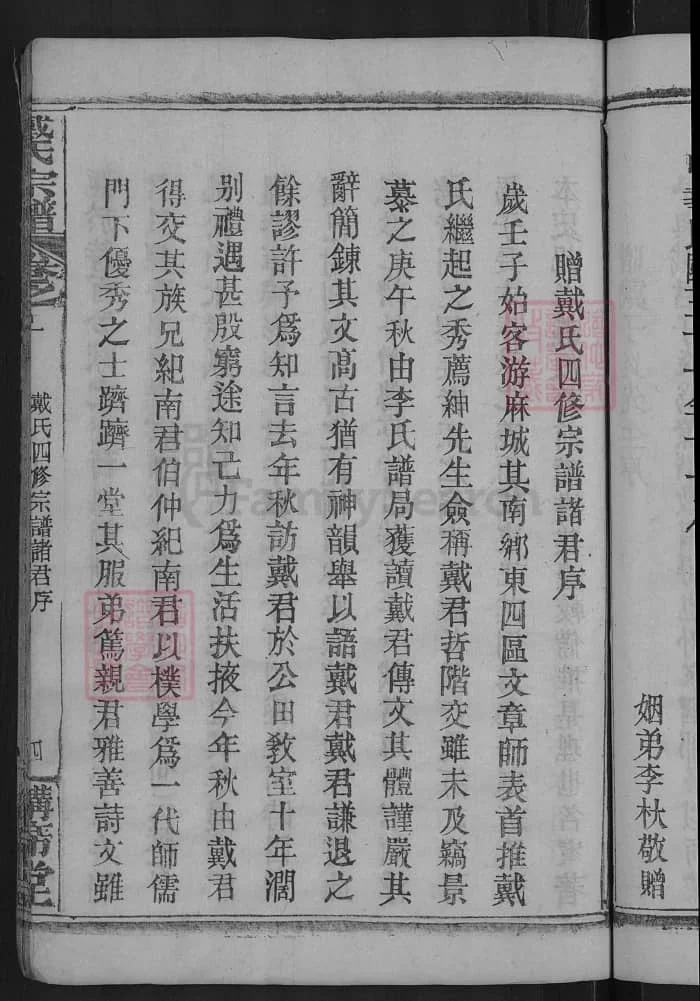 姻弟李杕敬贈
贈戴氏四修宗譜諸君序
歲壬子始客游麻城其南鄉東四區文章師表首推戴
氏繼起之秀薦紳先生僉稱戴君哲階交雖未及竊景
慕之庚午秋由李氏譜局獲讀戴君傳文其體謹嚴其
辭簡鍊其文高古猶有神韻舉以語戴君戴君謙退之
餘謬許予爲知言去年秋訪戴君於公田教室十年濶
别禮遇甚殷窮途知己力爲生活扶掖今年秋由戴君
得交其族兄紀南君伯仲紀南君以樸學爲一代師儒
門下優秀之士躋躋一堂其服弟篤親君雅善詩文雖
戴氏宗譜
卷之
戴氏四修宗譜諸君序
四